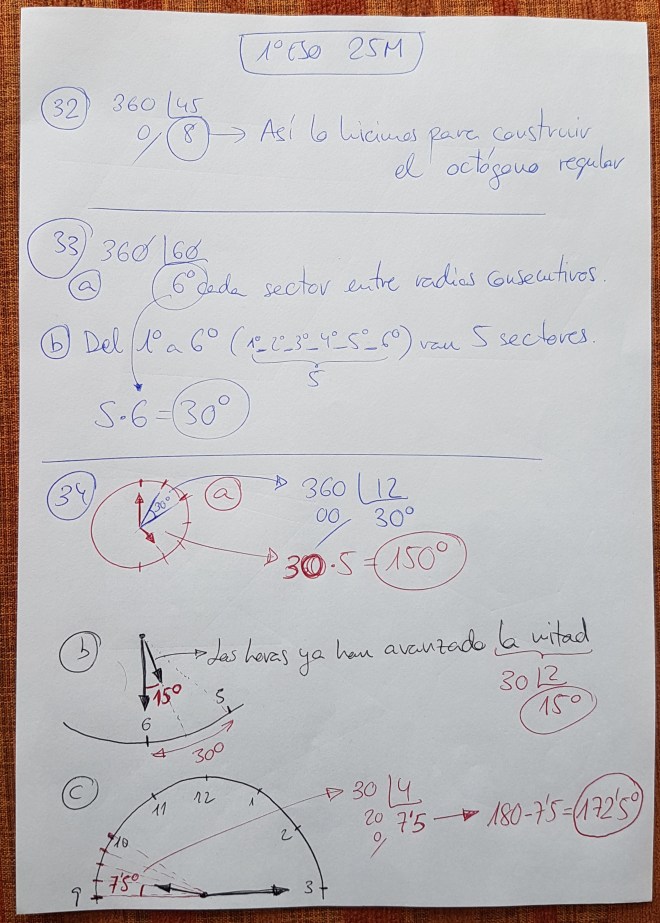 1º ESO 25M
32 360 | 45
0 8 → Así lo hicimos para construir
el octógono regular
33 360 | 60
a 6º cada sector entre radios consecutivos.
b Del 1º a 6º (1º-2º-3º-4º-5º-6º) van 5 sectores.
5
5·6=30º
34 30º a 360 | 12
00 30º
30·5=150º
b Las horas ya han avanzado la mitad
30 | 2
15º
15º
6 5
30º
c 30 | 4
20 7'5 → 180-7'5=172'5º
0
9 10 11 12 1 2 3
7'5º